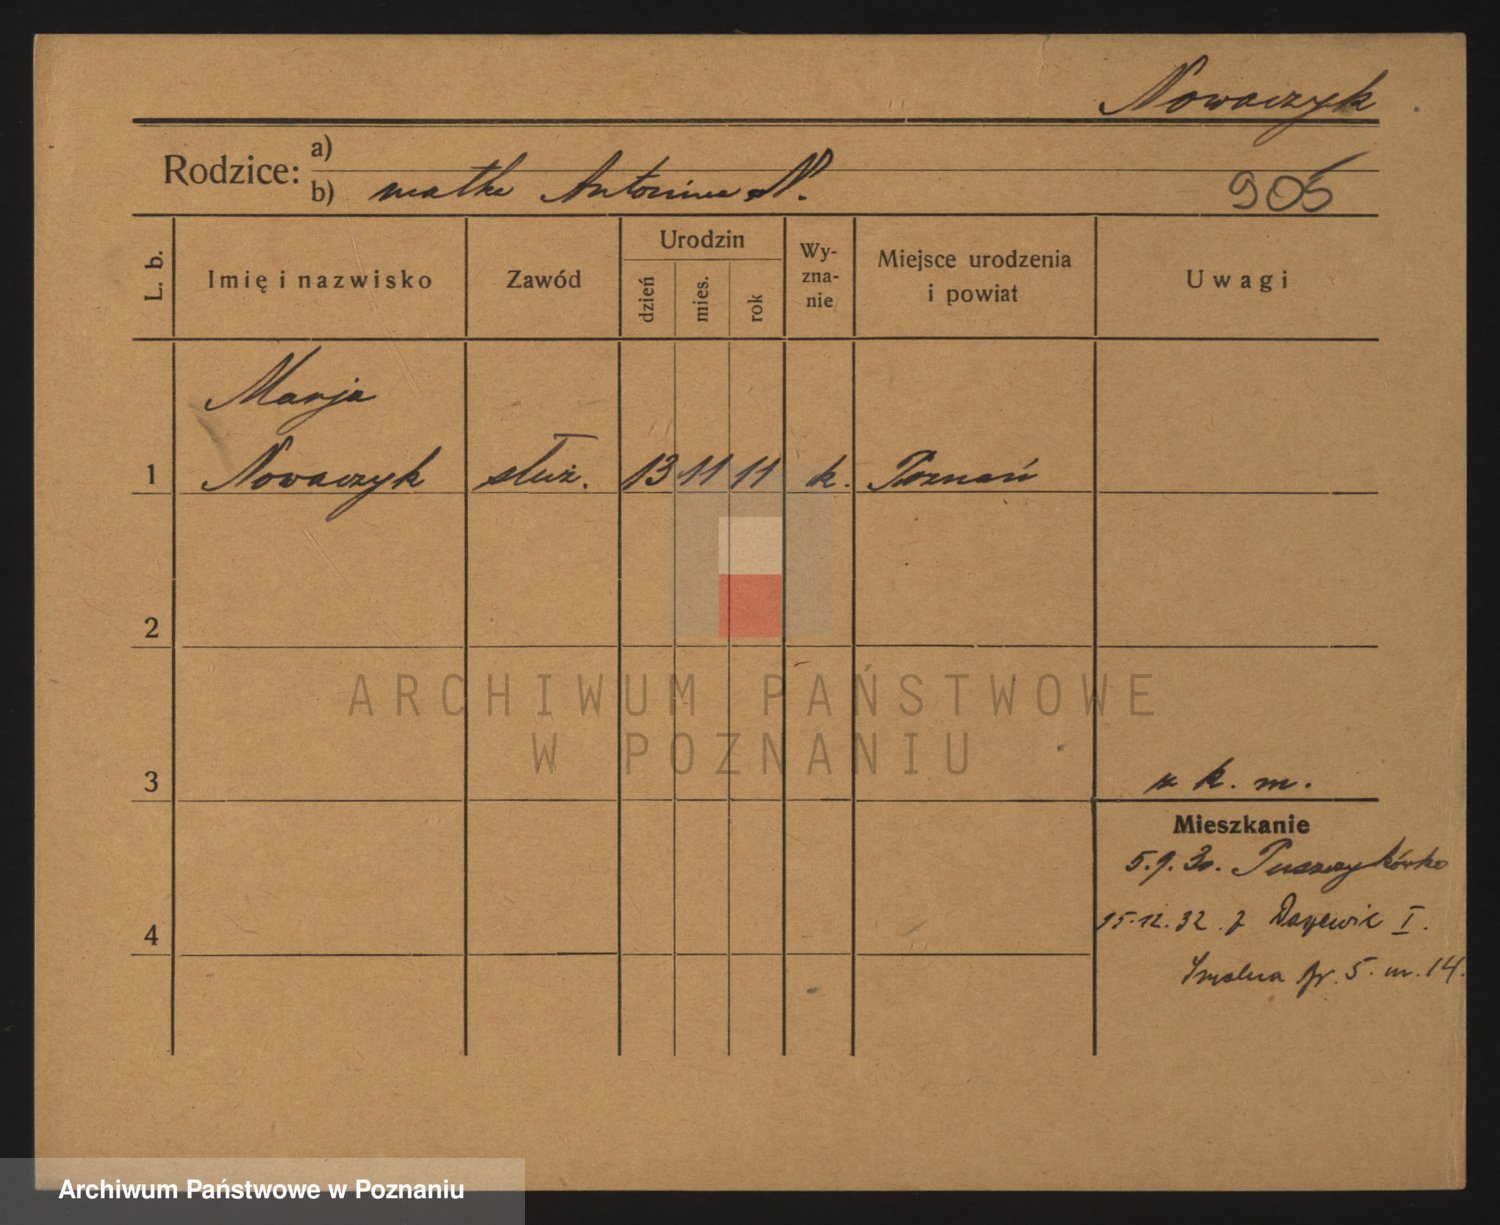 Nowaczyk
Rodzice: a)
b) matka Antonina N.
905
L. b.
Imię i nazwisko
Zawód
Urodzin
dzień
mies.
rok
Wy-
zna-
nie
Miejsce urodzenia
i powiat
Uwagi
Marja
1 Nowaczyk służ. 13 11 11 k. Poznań
2
ARCHIWUM PAŃSTWOWE
W POZNANIU
3
k. m.
Mieszkanie
5.9.30. Puszczykówko
15.12.32.
I.
4
Smolna 5. m. 14.
Archiwum Państwowe w Poznaniu